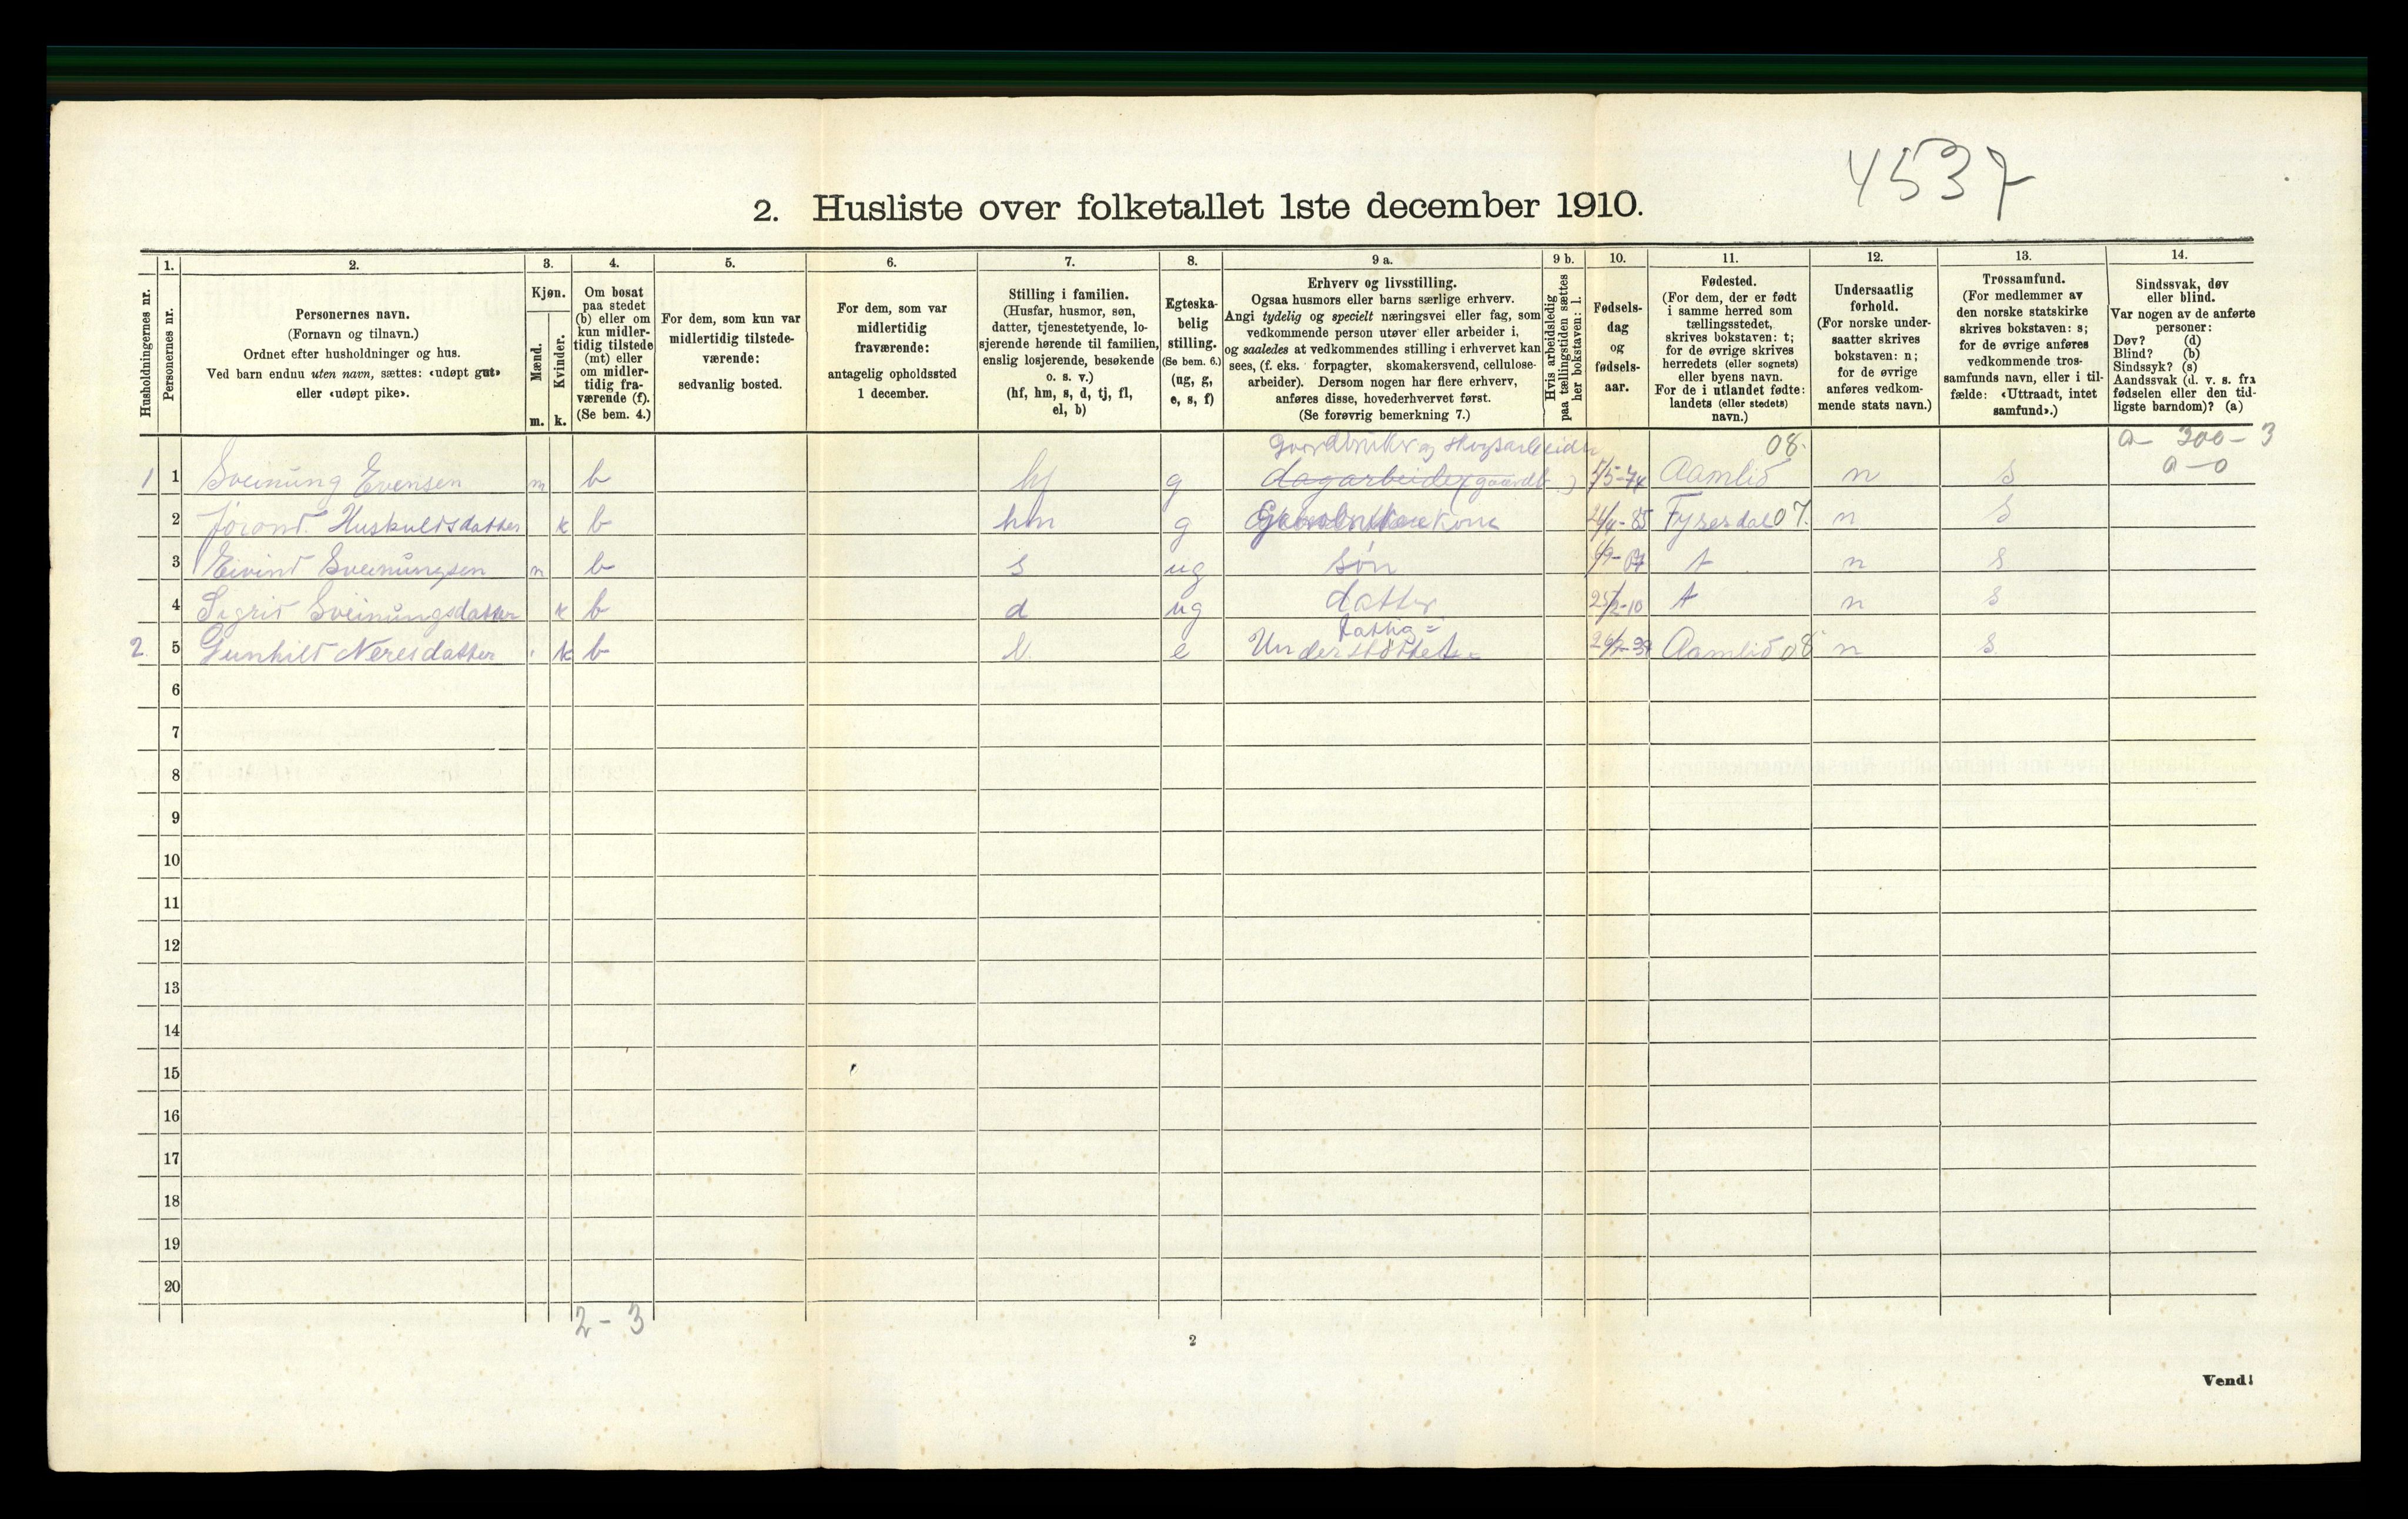 4537
2. Husliste over folketallet 1ste december 1910.
Husholdningernes nr.
1.
Personernes nr.
2.
Personernes navn.
(Fornavn og tilnavn.)
Ordnet efter husholdninger og hus.
Ved barn endnu uten navn, sættes: «udøpt gut»
eller «udøpt pike».
3.
Kjøn.
Mænd.
Kvinder.
m. k.
4.
Om bosat
paa stedet
(b) eller om
kun midler-
tidig tilstede
(mt) eller
om midler-
tidig fra-
værende (f).
(Se bem. 4.)
5.
For dem, som kun var
midlertidig tilstede-
værende:
sedvanlig bosted.
6.
For dem, som var
midlertidig
fraværende:
antagelig opholdssted
1 december.
7.
Stilling i familien.
(Husfar, husmor, søn,
datter, tjenestetyende, lo-
sjerende hørende til familien,
enslig losjerende, besøkende
o. s. v.)
(hf, hm, s, d, tj, fl,
el, b)
8.
Egteska-
belig
stilling.
(Se bem. 6.)
(ug, g,
e, s, f)
9 a.
Erhverv og livsstilling.
Ogsaa husmors eller barns særlige erhverv.
Angi tydelig og specielt næringsvei eller fag, som
vedkommende person utøver eller arbeider i,
og saaledes at vedkommendes stilling i erhvervet kan
sees, (f. eks. forpagter, skomakersvend, cellulose-
arbeider). Dersom nogen har flere erhverv,
anføres disse, hovederhvervet først.
(Se forøvrig bemerkning 7.)
9 b.
Hvis arbeidsledig
paa tællingstiden sættes
her bokstaven: l.
10.
Fødsels-
dag
og
fødsels-
aar.
11.
Fødested.
(For dem, der er født
i samme herred som
tællingsstedet,
skrives bokstaven: t;
for de øvrige skrives
herredets (eller sognets)
eller byens navn.
For de i utlandet fødte:
landets (eller stedets)
navn.)
12.
Undersaatlig
forhold.
(For norske under-
saatter skrives
bokstaven: n;
for de øvrige
anføres vedkom-
mende stats navn.)
13.
Trossamfund.
(For medlemmer av
den norske statskirke
skrives bokstaven: s;
for de øvrige anføres
vedkommende tros-
samfunds navn, eller i til-
fælde: «Uttraadt, intet
samfund».)
14.
Sindssvak, døv
eller blind.
Var nogen av de anførte
personer:
Døv? (d)
Blind? (b)
Sindssyk? (s)
Aandssvak (d. v. s. fra
fødselen eller den tid-
ligste barndom)? (a)
Gaardbruker og skogsarbeider 08. a - 300 - 3
1 1 Sveinung Evensen m b hf g dagarbeider (gaardb.) 5/5-74 Aamlid n s a - 0
2 Jørond. Huskuldsdatter k b hm g kone 85 Fyresdal 07. n s
3 Eivind Sveinungsen m b s ug søn t n s
4 Sigrid Sveinungsdatter k b d ug datter 25/2-10 t n s
fattig =
2. 5 Gunhild Neresdatter k b e Understöttet = Aamlid 08 n s
6
7
8
9
10
11
12
13
14
15
16
17
18
19
20
2 - 3
2
Vend!